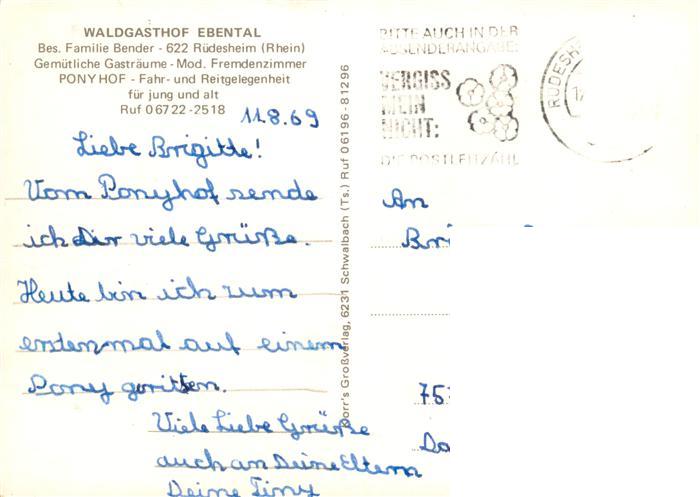 WALDGASTHOF EBENTAL
Bes. Familie Bender - 622 Rüdesheim (Rhein)
Gemütliche Gasträume - Mod. Fremdenzimmer
PONYHOF - Fahr- und Reitgelegenheit
für jung und alt
Ruf 06722-2518
11.8.69
Liebe Brigitte!
Vom Ponyhof sende
ich Dir viele Grüße.
Heute bin ich zum
erstenmal auf einem
Pony geritten.
Viele Liebe Grüße
auch an Deine Eltern
Deine Tiny
Dorr's Großverlag, 6231 Schwalbach (Ts.) Ruf 06196-81296
BITTE AUCH IN DER
ABSENDERANGABE:
VERGISS
MEIN
NICHT:
DIE POSTLEITZAHL
RÜDESH
An
Bri
75
Do